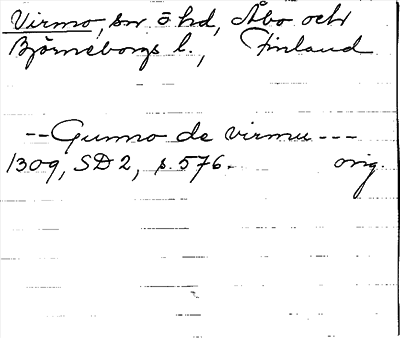 Virmo, sn o hd, Åbo och
Björneborgs l., Finland
-- Gunno de virmu ---
1309, SD 2, s. 576. orig.